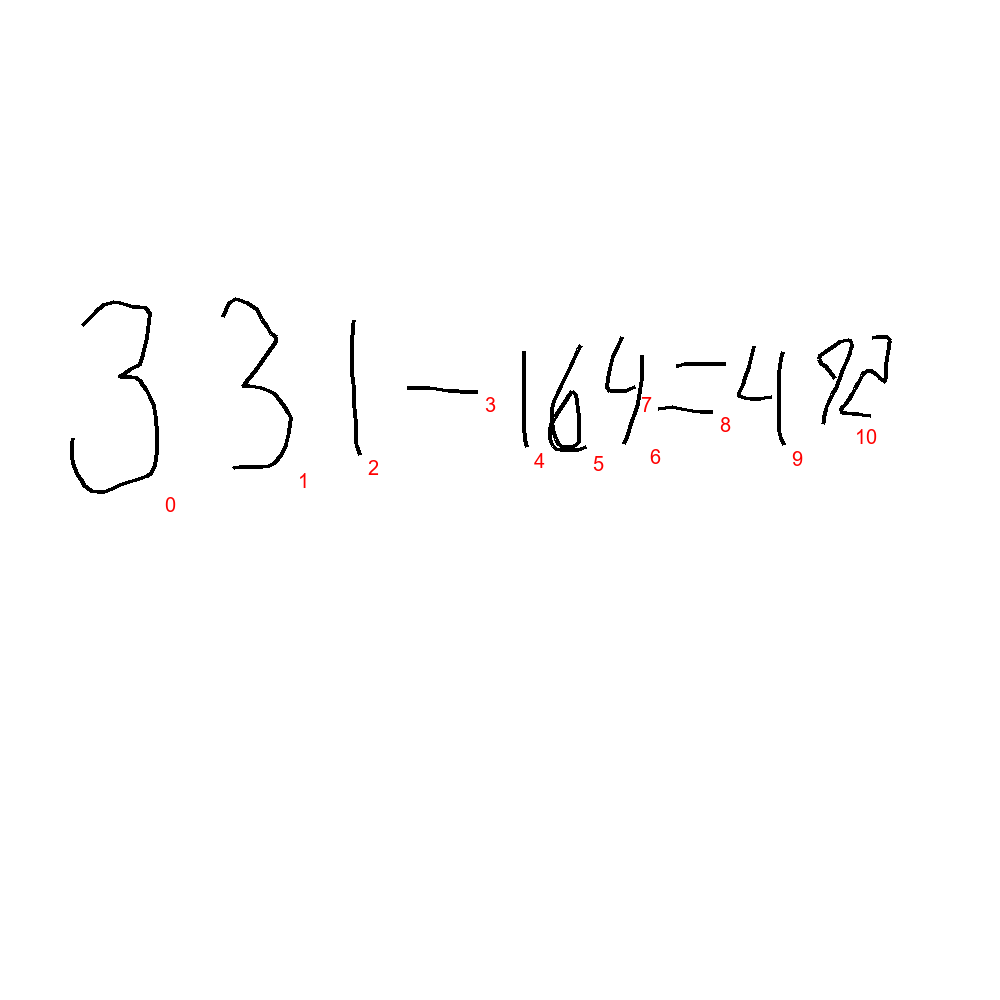 331-164=492
0 1 2 3 4 5 6 7 8 9 10